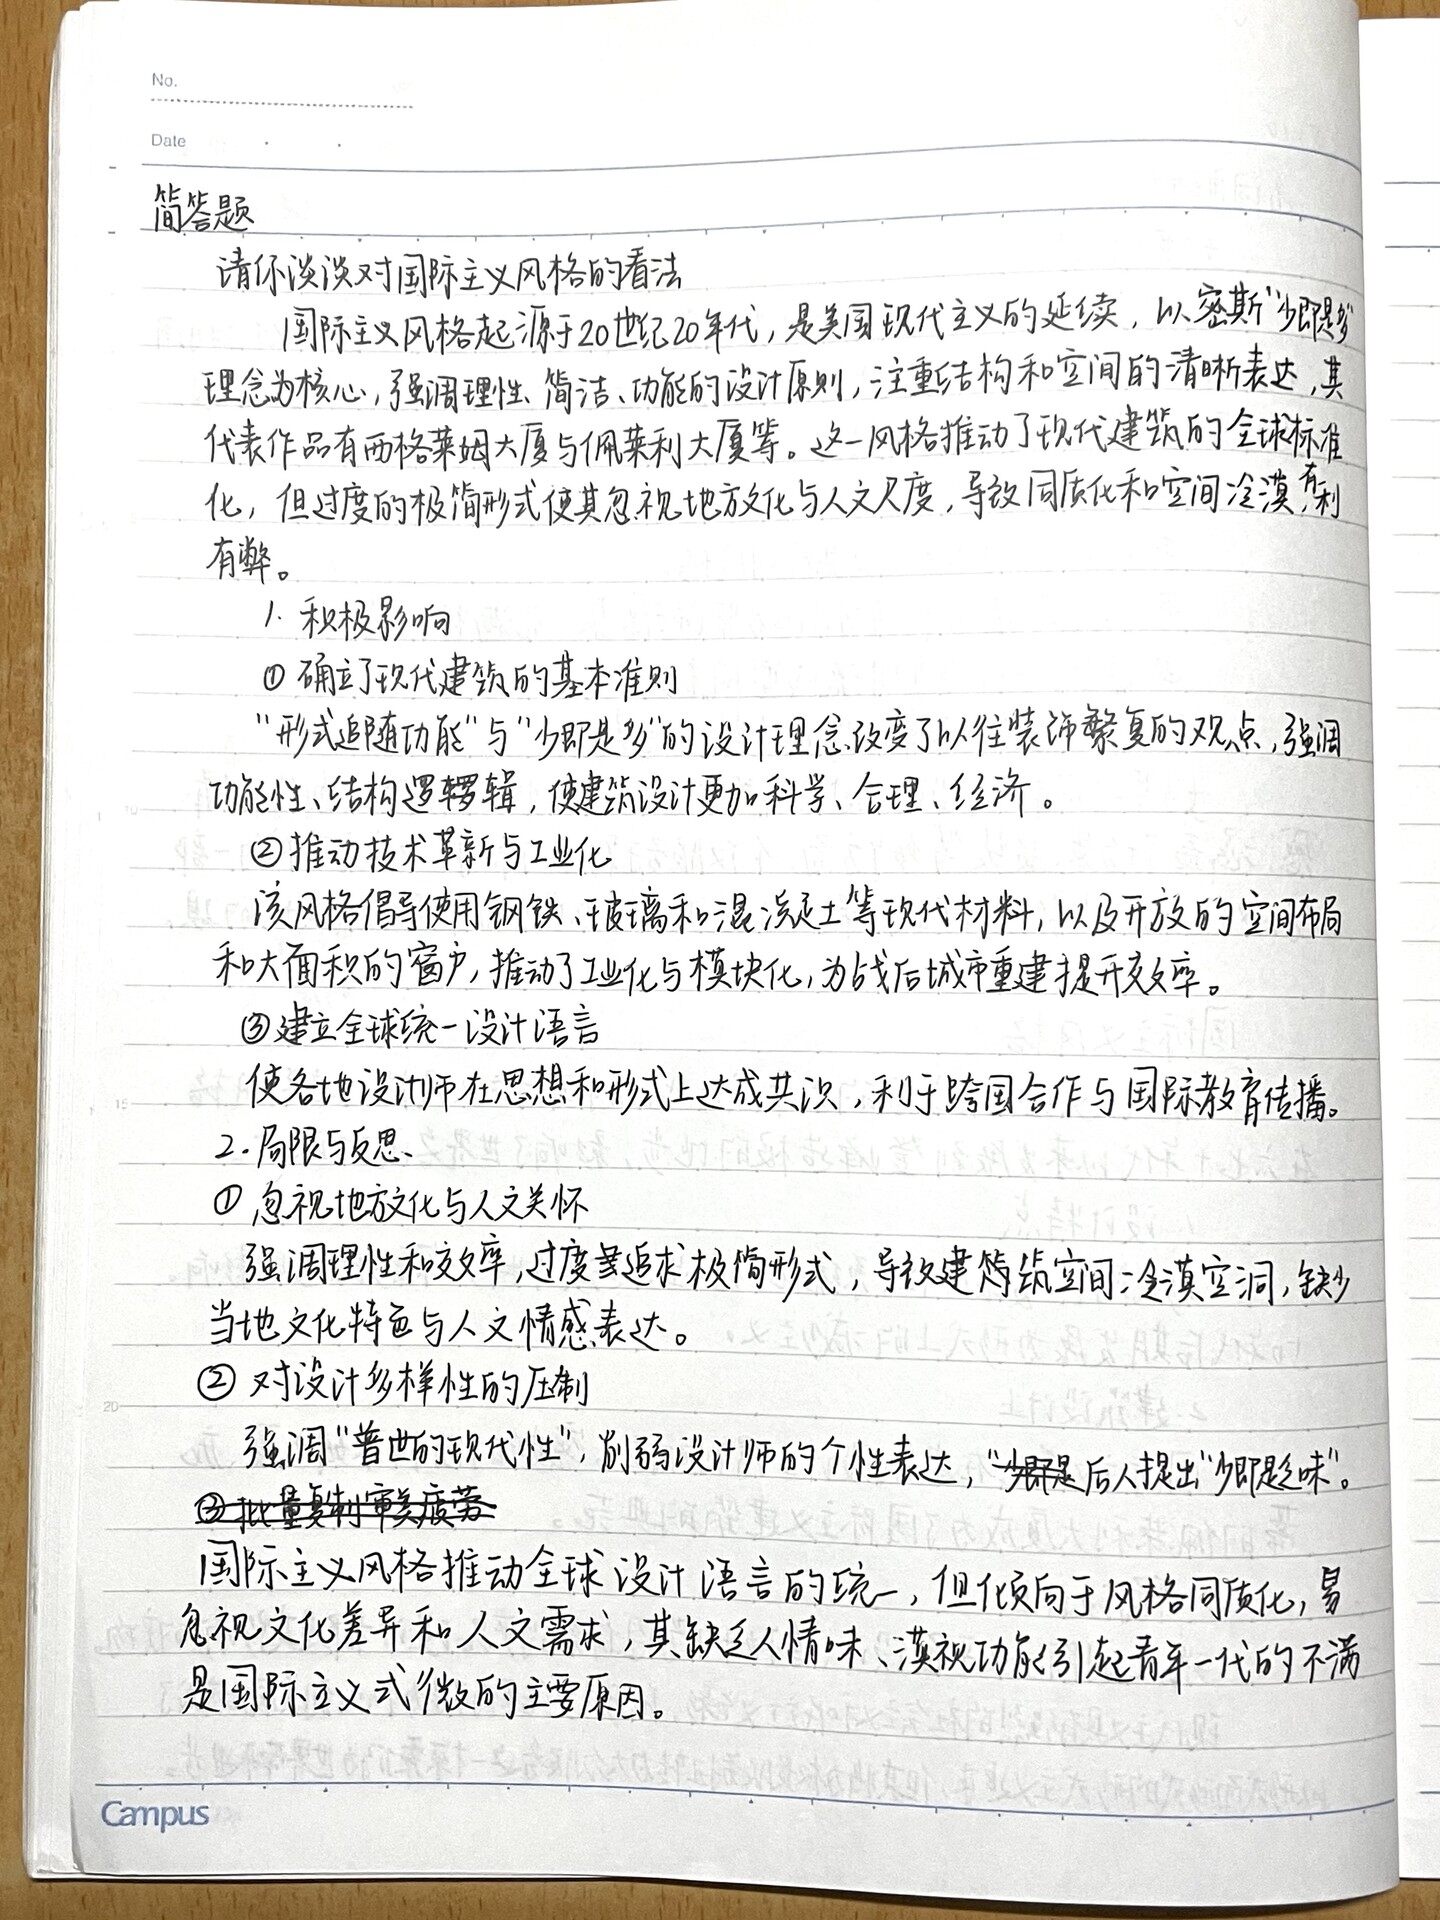 No.
Date
简答题
请你谈谈对国际主义风格的看法
国际主义风格起源于20世纪20年代，是美国现代主义的延续，以密斯“少即是多”
理念为核心，强调理性、简洁、功能的设计原则，注重结构和空间的清晰表达，其
代表作品有西格莱姆大厦与佩莱利大厦等。这一风格推动了现代建筑的全球标准
化，但过度的极简形式使其忽视地方文化与人文尺度，导致同质化和空间冷漠，有利
有弊。
1. 积极影响
① 确立了现代建筑的基本准则
“形式追随功能”与“少即是多”的设计理念改变了以往装饰繁复的观点，强调
功能性、结构逻辑，使建筑设计更加科学、合理、经济。
②推动技术革新与工业化
该风格倡导使用钢铁、玻璃和混凝土等现代材料，以及开放的空间布局
和大面积的窗户，推动了工业化与模块化，为战后城市重建提升效率。
③建立全球统一设计语言
使各地设计师在思想和形式上达成共识，利于跨国合作与国际教育传播。
2. 局限与反思
① 忽视地方文化与人文关怀
15
强调理性和效率，过度追求极简形式，导致建筑空间冷漠空洞，缺少
当地文化特色与人文情感表达。
② 对设计多样性的压制
20
强调“普世的现代性”，削弱设计师的个性表达，“少即是后人提出“少即是乏味”。
③批量复制审美疲劳
国际主义风格推动全球设计语言的统一，但倾向于风格同质化，易
忽视文化差异和人文需求，其缺乏人情味、漠视功能引起青年一代的不满
是国际主义式微的主要原因。
Campus